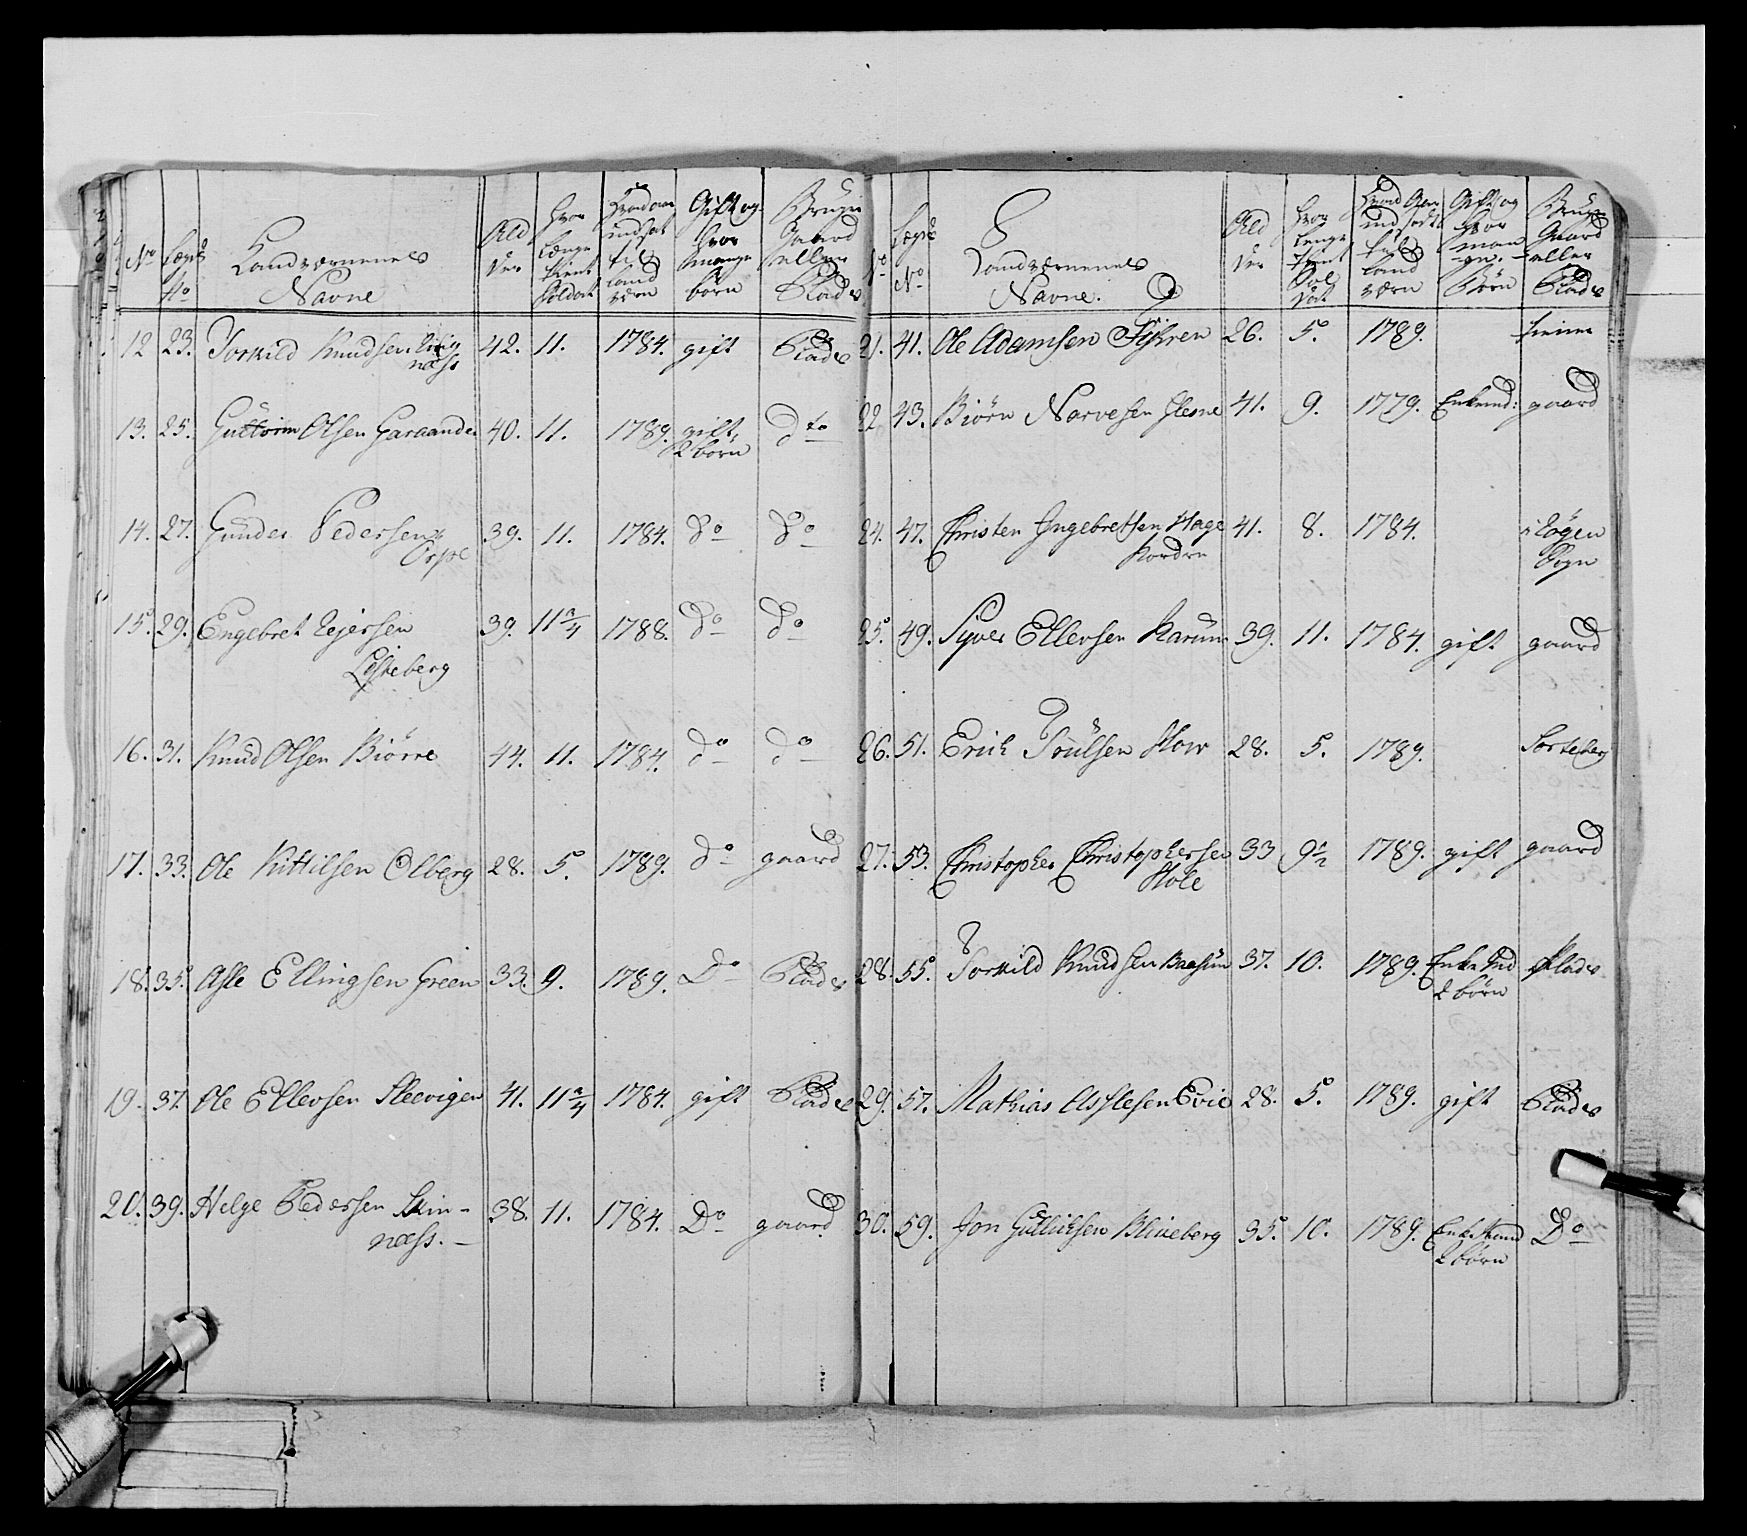 No Lægs No Landværnenes Navne Alder hvor længe tient Soldat hvad aar indsat til Land værn Gift og hvor mange børn Bruger Gaard eller Plads
12 23. Torkild Knudsen næss 42. 11. 1784. gift Plads
13. 25. Guttorm Olsen Garaander 40. 11. 1789. gift, 2 børn dto
14. 27. Gunder Pedersen Espe 39. 11. 1784. do do
15. 29. Engebret Ejersen Leskeberg 39. 11 3/4 1788. do do
16. 31. Knud Olsen Biørre 44. 11. 1784. do do
17. 33. Ole Kittilsen Olberg 28. 5. 1789. do gaard
18. 35. Asle Ellingsen Green 33. 9. 1789. Do Plads
19. 37. Ole Ellevsen Sleevigen 41. 11 3/4 1784. gift Plads
20. 39. Helge Pedersen Skin-næss. 38. 11. 1784. Do gaard
No Lægs No Landværnenes Navne. Alder hvor lenge tient Soldat hvad Aar indsadt til land værn Gift og hvor mange Børn Bruger Gaard eller Plads
21. 41. Ole Adamsen 26. 5. 1789. tiener
22. 43. Biørn Narvesen Glesne 41. 9. 1779. Enkemd: gaard
24. 47. Christen Ingebretsen Hage Nordre 41. 8. 1784. i Sogn
25. 49. Syver Ellevsen Karum 39. 11. 1784. gift gaard
26. 51. Erich Poulsen How 28. 5. 1789. Sorteberg
27. 53. Christopher Christophersen Hole 33 9 1/2 1789. gift gaard
28. 55. Torkild Knudsen Braasun 37. 10. 1789. Enke Md 2 børn Plads
29. 57. Mathias Asslesen Evie 28. 5. 1789. gift Plads
30. 59. Jon Gulliksen Blikeberg 35. 10. 1789. Enke Mand 2 børn Do